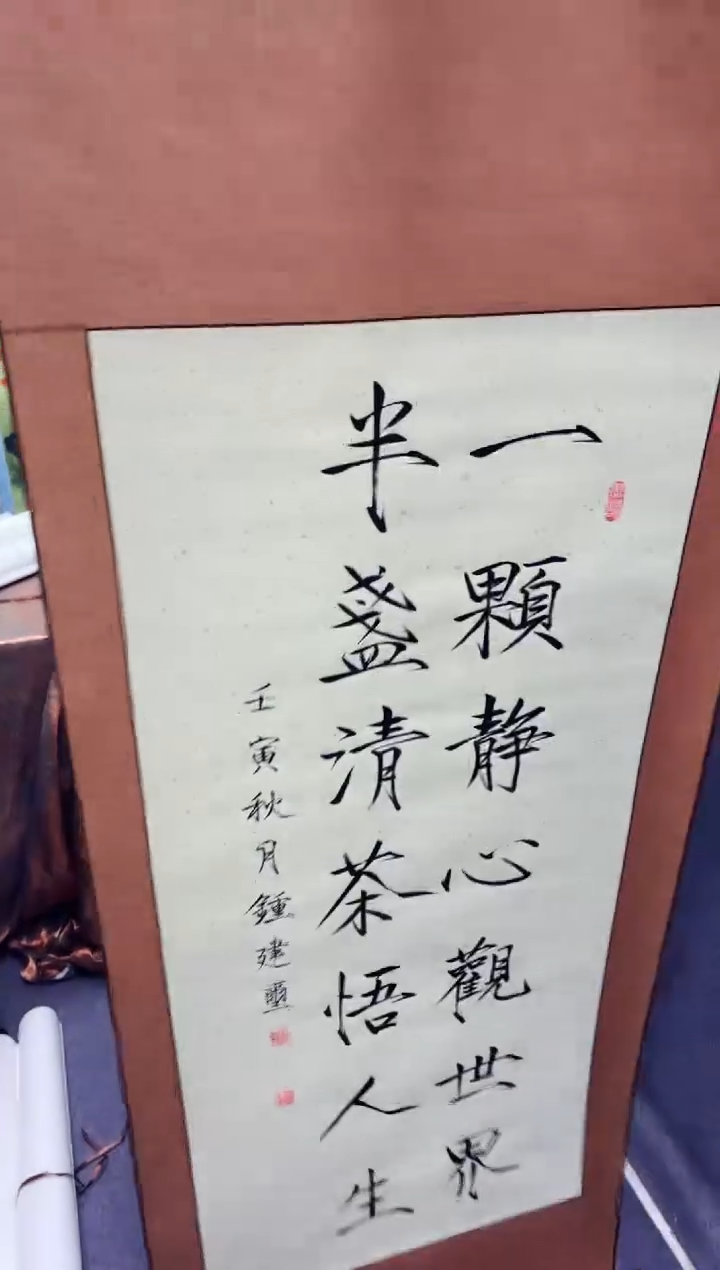 一顆静心觀世界
半盞清茶悟人生
壬寅秋月鍾建